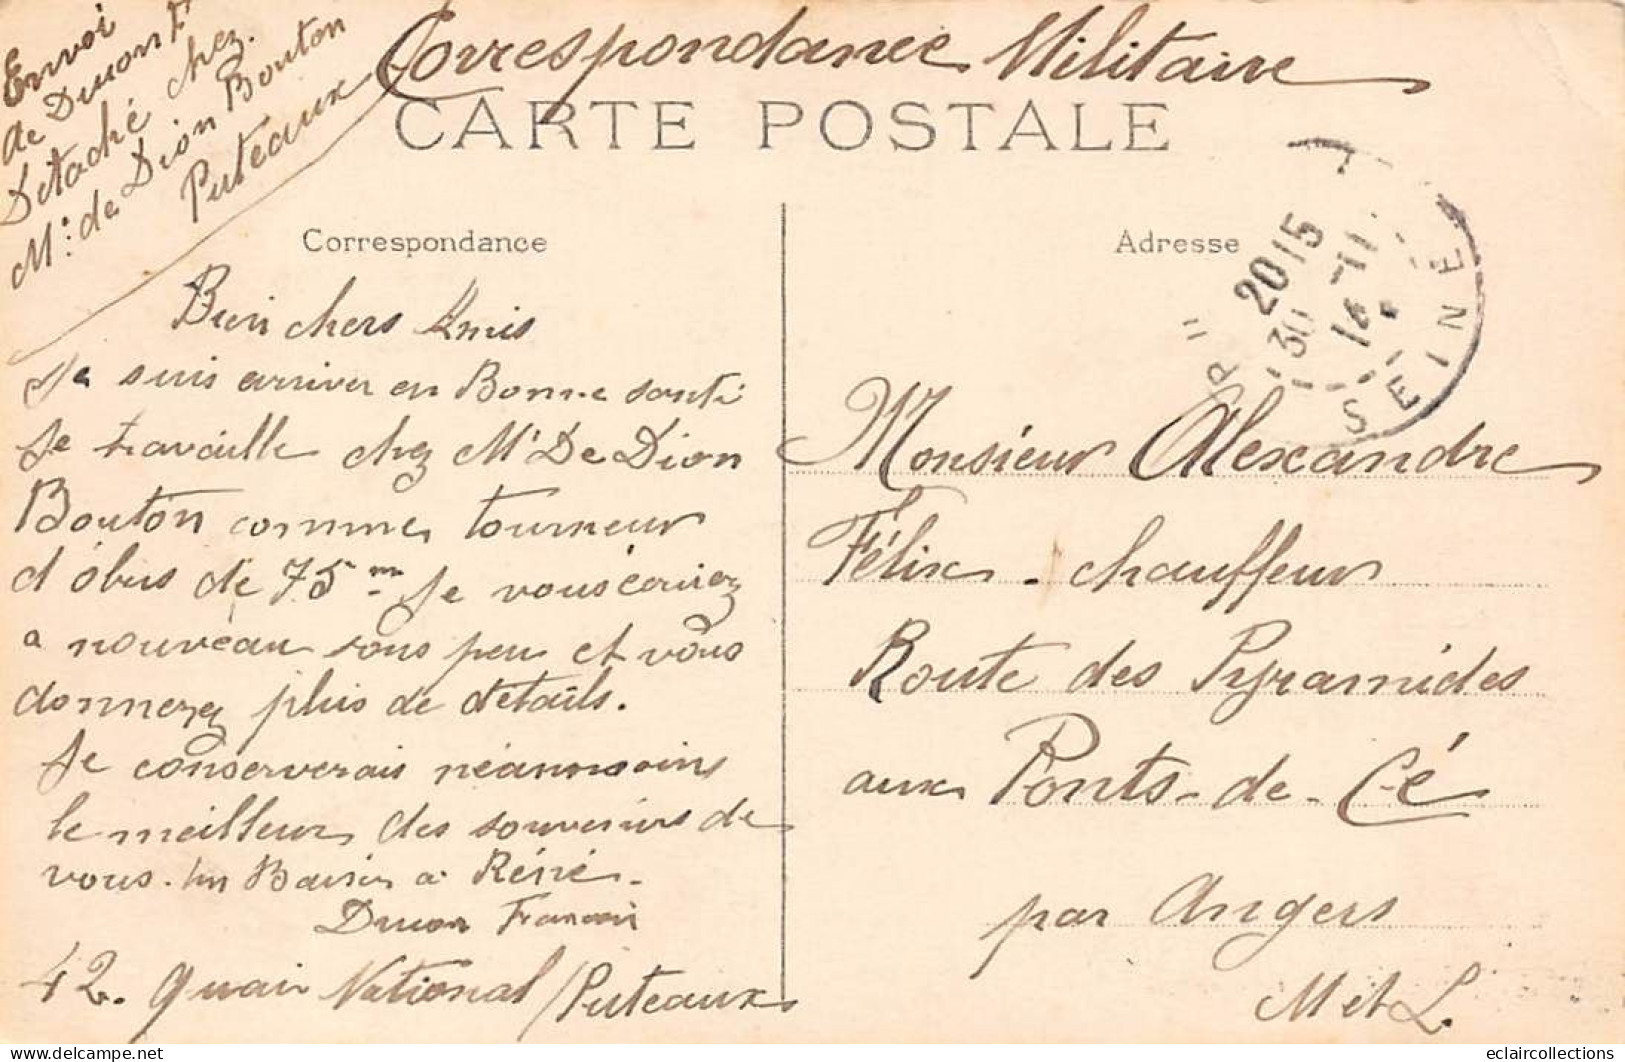 Correspondance Militaire
Envoi
de Dumont F
Détaché chez
Mr. de Dion Bouton
Puteaux
CARTE POSTALE
Correspondance
Adresse
20 15
30 - 11
14
SEINE
Bien chers Amis
Je suis arriver en Bonne santé
Je travaille chez Mr De Dion
Bouton comme tourneur
d'óbus de 75 mm Je vous écrirez
a nouveau sous peu et vous
donnerez plus de détails.
Je conserverais néanmoins
le meilleur des souvenirs de
vous. Un Baiser a Réné.
François
42. quai National / Puteaux
Monsieur Alexandre
Félix - chauffeur
Route des Pyramides
aux Ponts-de-Cé
par Angers
M et L.
eclaircollections